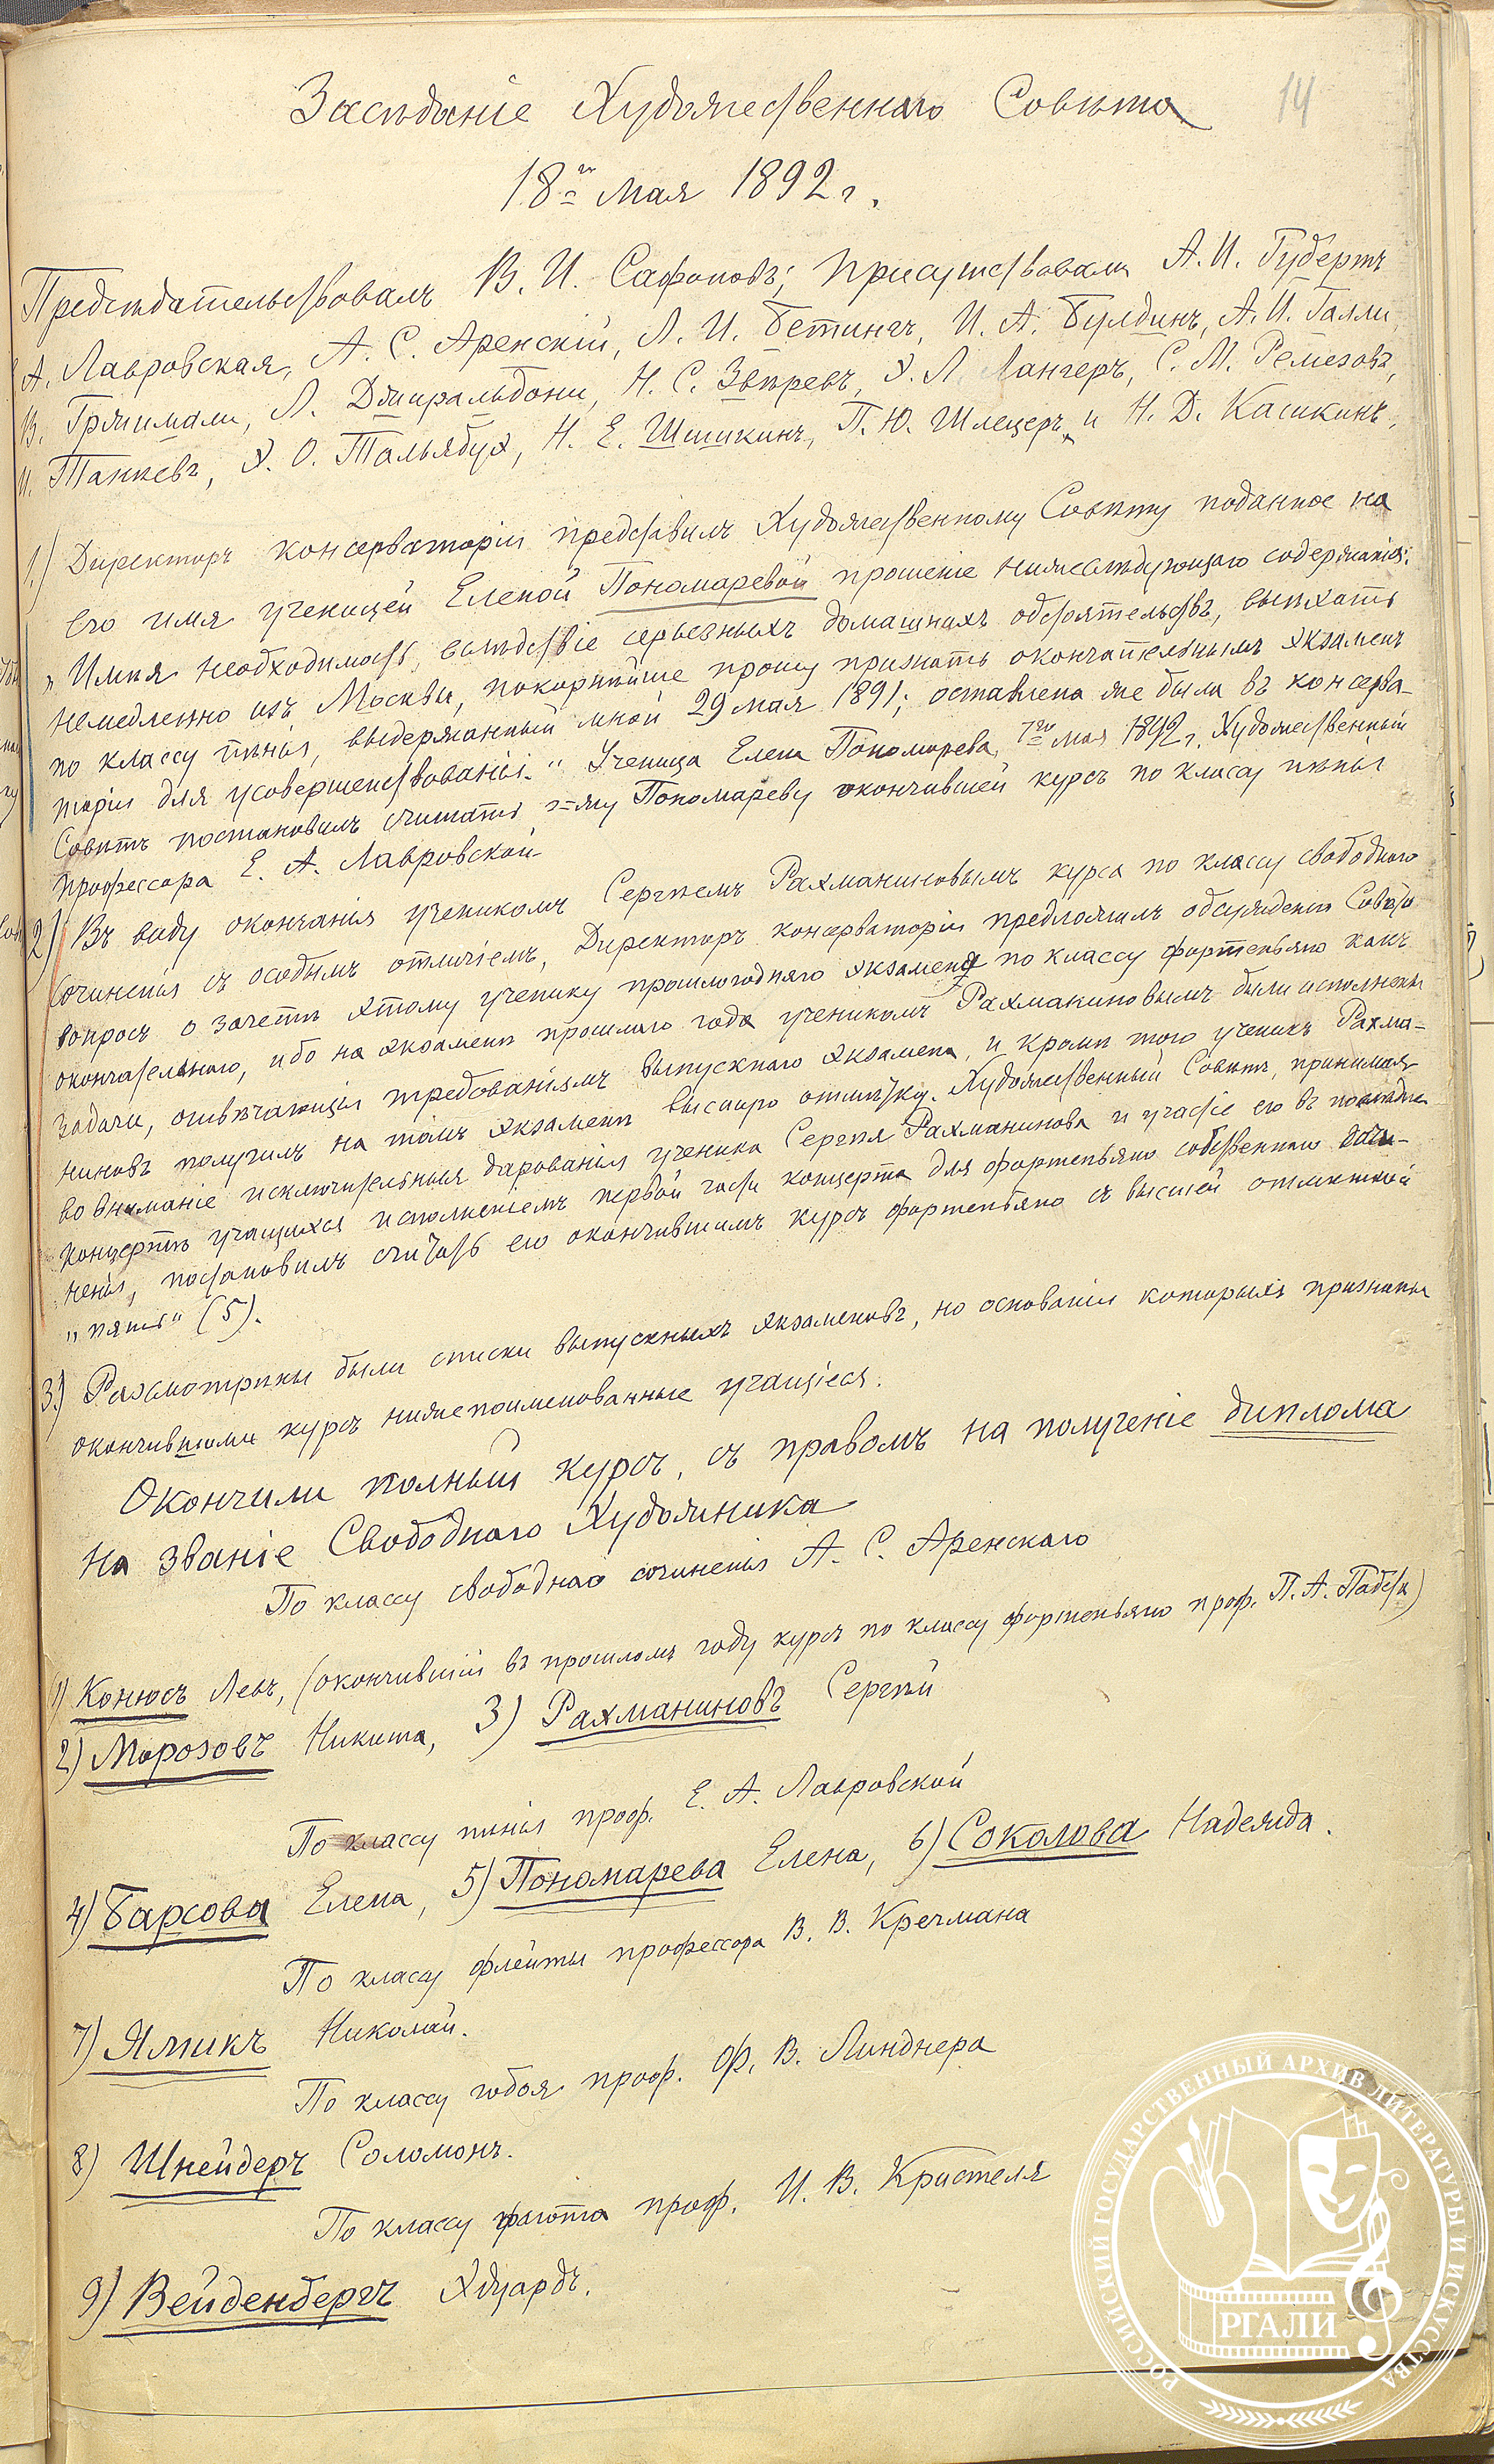 14
Засѣданіе Художественнаго Совѣта
18го мая 1892 г.
Предсѣдательствовалъ В. И. Сафоновъ; присутствовали А. И. Губертъ
А. Лавровская, А. С. Аренскій, Л. И. Бетингъ, И. А. Булдинъ, А. И. Галли,
В. Гржимали, Л. Джиральдони, Н. С. Звѣревъ, Э. Л. Лангеръ, С. М. Ремезовъ,
И. Танѣевъ, Э. О. Тальябуэ, Н. Е. Шишкинъ, П. Ю. Шлецеръ и Н. Д. Кашкинъ.
1.) Директоръ консерваторіи представилъ Художественному Совѣту поданное на
его имя ученицей Еленой Пономаревой прошеніе нижеслѣдующаго содержанія:
„Имѣя необходимость, вслѣдствіе серьезныхъ домашнихъ обстоятельствъ, выѣхать
немедленно изъ Москвы, покорнѣйше прошу признать окончательнымъ экзаменъ
по классу пѣнія, выдержанный мной 29 мая 1891; оставлена же была въ консерва-
торіи для усовершенствованія.“ Ученица Елена Пономарева, 7го мая 1892 г. Художественный
Совѣтъ постановилъ считать г-жу Пономареву окончившей курсъ по классу пѣнія
профессора Е. А. Лавровской.
2) Въ виду окончанія ученикомъ Сергѣемъ Рахманиновымъ курса по классу свободнаго
сочиненія съ особымъ отличіемъ, Директоръ консерваторіи предложилъ обсужденію Совѣта
вопросъ о зачетѣ этому ученику прошлогодняго экзамена по классу фортепьяно какъ
окончательнаго, ибо на экзаменѣ прошлаго года ученикомъ Рахманиновымъ были исполнены
задачи, отвѣчающія требованіямъ выпускнаго экзамена, и кромѣ того ученикъ Рахма-
ниновъ получилъ на томъ экзаменѣ высшую отмѣтку. Художественный Совѣтъ, принимая
во вниманіе исключительныя дарованія ученика Сергѣя Рахманинова и участіе его въ
концертѣ учащихся исполненіемъ первой части концерта для фортепьяно собственнаго сочи-
ненія, постановилъ считать его окончившимъ курсъ фортепьяно съ высшей отмѣткой
„пять“ (5).
3.) Разсмотрѣны были списки выпускныхъ экзаменовъ, на основаніи которыхъ признаны
окончившими курсъ нижепоименованные учащіеся.
Окончили полный курсъ, съ правомъ на полученіе диплома
на званіе Свободнаго Художника
По классу свободнаго сочиненія А. С. Аренскаго
1) Конюсъ Левъ, (окончившій въ прошломъ году курсъ по классу фортепьяно проф. П. А. Пабста)
2) Морозовъ Никита, 3) Рахманиновъ Сергѣй
По классу пѣнія проф. Е. А. Лавровской
4) Барсова Елена, 5) Пономарева Елена, 6) Соколова Надежда.
По классу флейты профессора В. В. Кречмана
7) Ямикъ Николай.
По классу гобоя проф. Ф. В. Линднера
8) Шнейдеръ Соломонъ.
По классу фагота проф. И. В. Кристеля
9) Вейденбергъ Эдуардъ.
РОССИЙСКИЙ ГОСУДАРСТВЕННЫЙ АРХИВ ЛИТЕРАТУРЫ И ИСКУССТВА
РГАЛИ